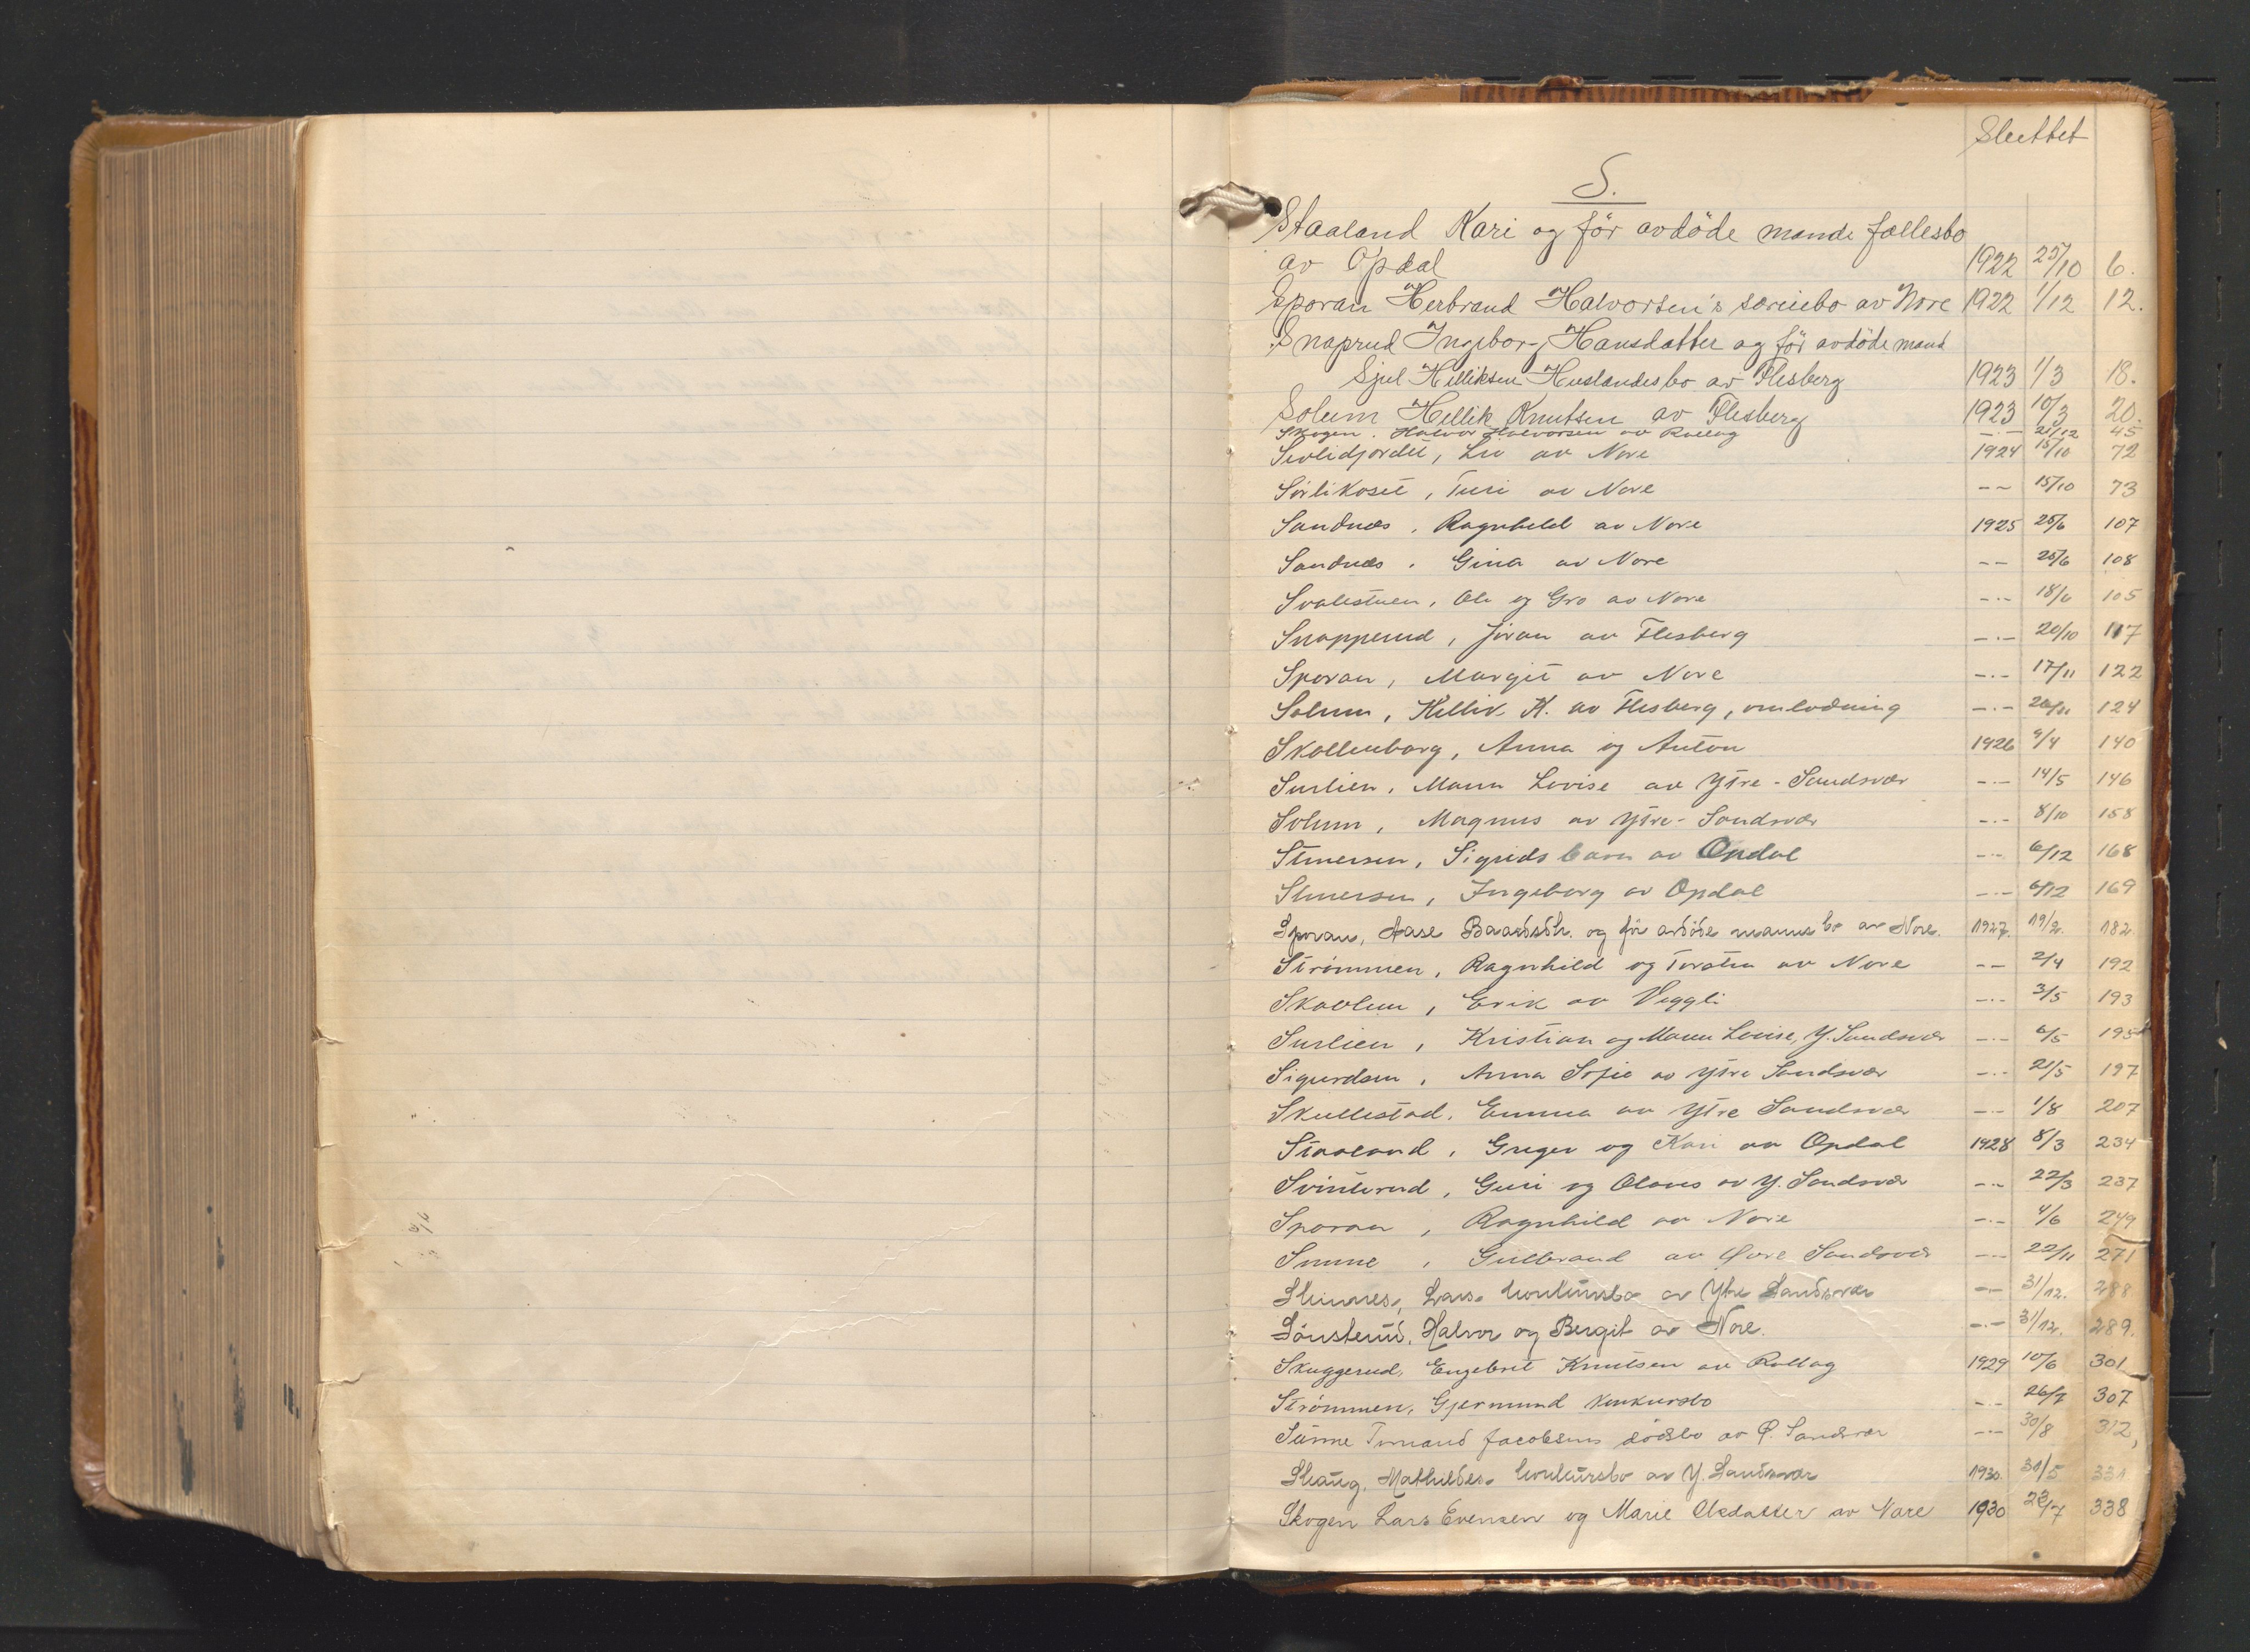 Sluttet
S.
Staaland Kari og för avdöde mands fællesbo
av Opdal 1922 25/10 6.
Sporan Herbrand Halvorsen's særeiebo av Nore 1922 1/12 12.
Snaprud Ingeborg Hansdatter og för avdöde mand
Sjul Helliksen Huslandesbo av Flesberg 1923 1/3 18.
Solum Hellik Knutsen av Flesberg 1923 10/3 20.
Skogen. Halvor Halvorsen av Rollag -.- 21/12 45
Sevlidjordet, Liv av Nore 1924 15/10 72
Sørlikoset, Turi av Nore -- 15/10 73
Sandnes, Ragnhild av Nore 1925 25/6 107
Sandnes, Gina av Nore -- 25/6 108
Svalestuen, Ole og Gro av Nore -.- 18/6 105
Snapperud, Jöran av Flesberg -.- 20/10 117
Sporan, Margit av Nore -.- 17/11 122
Solum, Hellik K. av Flesberg, omlodning -.- 20/11 124
Skollenborg, Anna og Anton 1926 9/4 140
Surlien, Maren Lovise av Ytre-Sandsvær -.- 14/5 146
Solum, Magnus av Ytre-Sandsvær -.- 8/10 158
Simersen, Sigrids barn av Opdal -.- 6/12 168
Simersen, Ingeborg av Opdal -.- 6/12 169
Sporan, Aase Baardsdtr. og för avdöde manns bo av Nore. 1927. 19/2. 182
Strömmen, Ragnhild og Torsten av Nore -- 2/4 192
Skavlum, Erik av Veggli -.- 3/5 193
Surlien, Kristian og Maren Lovise, Y. Sandsvær -.- 6/5 195
Sigurdsen, Anna Sofie av Ytre Sandsvær -.- 21/5 197
Skullestad, Emma av Ytre Sandsvær -.- 1/8 207
Staaland, Greger og Kari av Opdal 1928 8/3 234
Svinterud, Guri og Olaves av Y. Sandsvær -.- 22/3 237
Sporan, Ragnhild av Nore -.- 4/6 249
Sunne, Gulbrand av Øvre Sandsvær -.- 22/11 271
Lars konkursbo av Ytre Sandsvær -.- 31/12. 288
Sönsterud, Halvor og Bergit av Nore. -.- 31/12. 289.
Skuggerud, Engebret Knutsen av Rollag 1929 10/6 301
Strömmen, Gjermund konkursbo -.- 26/7 307
Sunne Jacobsens dödsbo av Ø. Sandsvær -.- 30/8 312,
Skaug, Mathildes konkursbo av Y. Sandsvær 1930. 31/5 331
Skogen Lars Evensen og Marie Olsdatter av Nore 1930 23/7 338